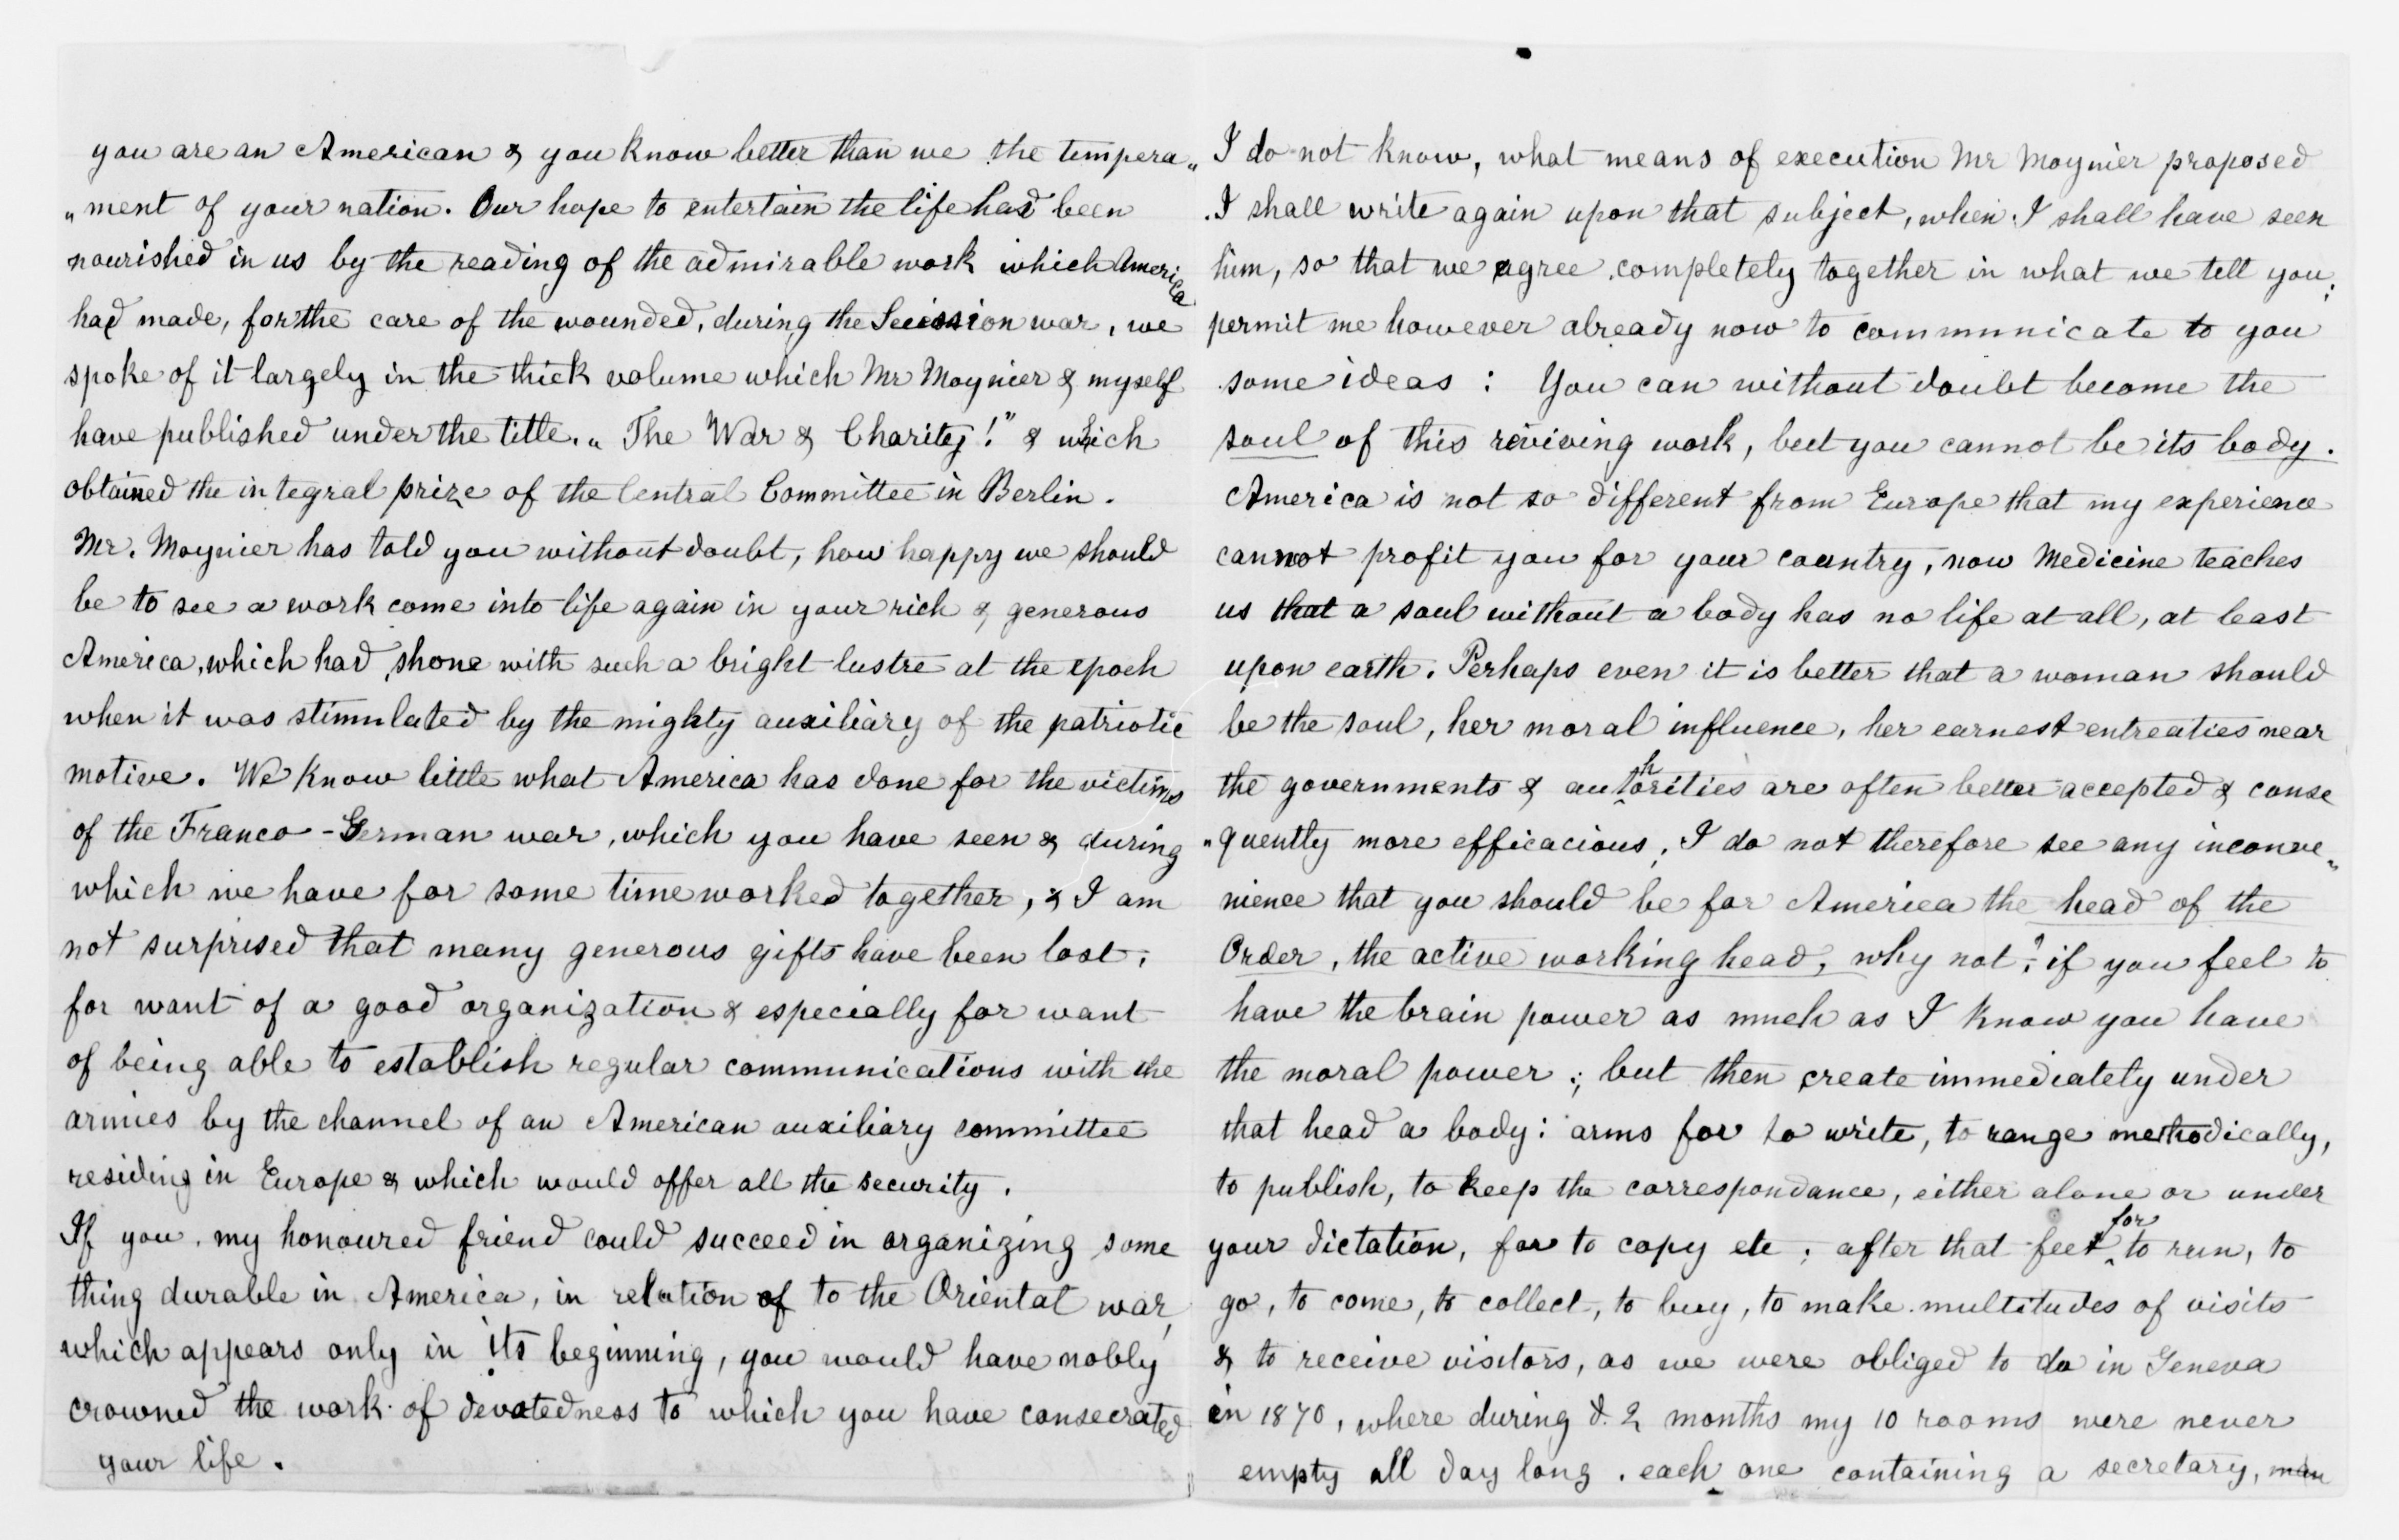 you are an American & you know better than we the tempera„
„ment of your nation. Our hope to entertain the life has been
nourished in us by the reading of the admirable work which America
had made, for the care of the wounded, during the Secission war, we
spoke of it largely in the thick volume which Mr Moynier & myself
have published under the title. „The War & Charity!" & which
obtained the integral prize of the Central Committee in Berlin.
Mr. Moynier has told you without doubt, how happy we should
be to see a work come into life again in your rich & generous
America, which had shone with such a bright lustre at the epoch
when it was stimulated by the mighty auxiliary of the patriotic
motive. We know little what America has done for the victims
of the Franco-German war, which you have seen & during
which we have for some time worked together, & I am
not surprised that many generous gifts have been lost,
for want of a good organization & especially for want
of being able to establish regular communications with the
armies by the channel of an American auxiliary committee
residing in Europe & which would offer all the security.
If you, my honoured friend could succeed in organizing some
thing durable in America, in relation of to the Oriental war,
which appears only in its beginning, you would have nobly
crowned the work of devotedness to which you have consecrated
your life.
I do not know, what means of execution Mr Moynier proposed
. I shall write again upon that subject, when I shall have seen
him, so that we agree completely together in what we tell you;
permit me however already now to communicate to you
some ideas : You can without doubt become the
soul of this reviving work, but you cannot be its body.
America is not so different from Europe that my experience
cannot profit you for your country, now Medicine teaches
us that a soul without a body has no life at all, at least
upon earth. Perhaps even it is better that a woman should
be the soul, her moral influence, her earnest entreaties near
the governments & authorities are often better accepted & conse
„quently more efficacious; I do not therefore see any inconve„
nience that you should be for America the head of the
Order, the active working head, why not? if you feel to
have the brain power as much as I know you have
the moral power ; but then create immediately under
that head a body: arms for to write, to range methodically,
to publish, to keep the correspondance, either alone or under
your dictation, for to copy etc ; after that feet for to run, to
go, to come, to collect, to buy, to make multitudes of visits
& to receive visitors, as we were obliged to do in Geneva
in 1870, where during 2 months my 10 rooms were never
empty all day long, each one containing a secretary, man